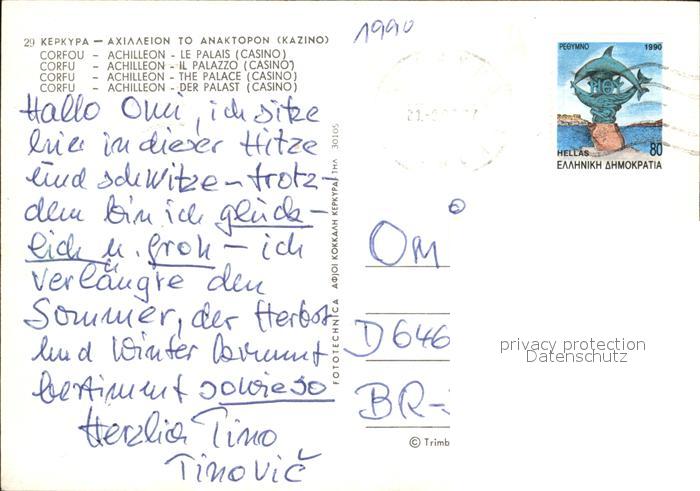 1990
29 ΚΕΡΚΥΡΑ – ΑΧΙΛΛΕΙΟΝ ΤΟ ΑΝΑΚΤΟΡΟΝ (ΚΑΖΙΝΟ)
CORFOU – ACHILLEON – LE PALAIS (CASINO)
CORFU – ACHILLEON – IL PALAZZO (CASINO)
CORFU – ACHILLEON – THE PALACE (CASINO)
CORFU – ACHILLEON – DER PALAST (CASINO)
Hallo Omi, ich sitze
hier in dieser Hitze
und schwitze – trotz-
dem bin ich glück-
lich u. froh – ich
verlängre den
Sommer, der Herbst
und Winter kommt
bestimmt sowieso
Herzlich Tino
Tinovič
FOTOTECHNICA ΑΦΟΙ ΚΟΚΚΑΛΗ ΚΕΡΚΥΡΑ ΤΗΛ 30105
ΡΕΘΥΜΝΟ 1990
HELLAS 80
ΕΛΛΗΝΙΚΗ ΔΗΜΟΚΡΑΤΙΑ
Om
D 646
BR-
privacy protection
Datenschutz
© Trimb